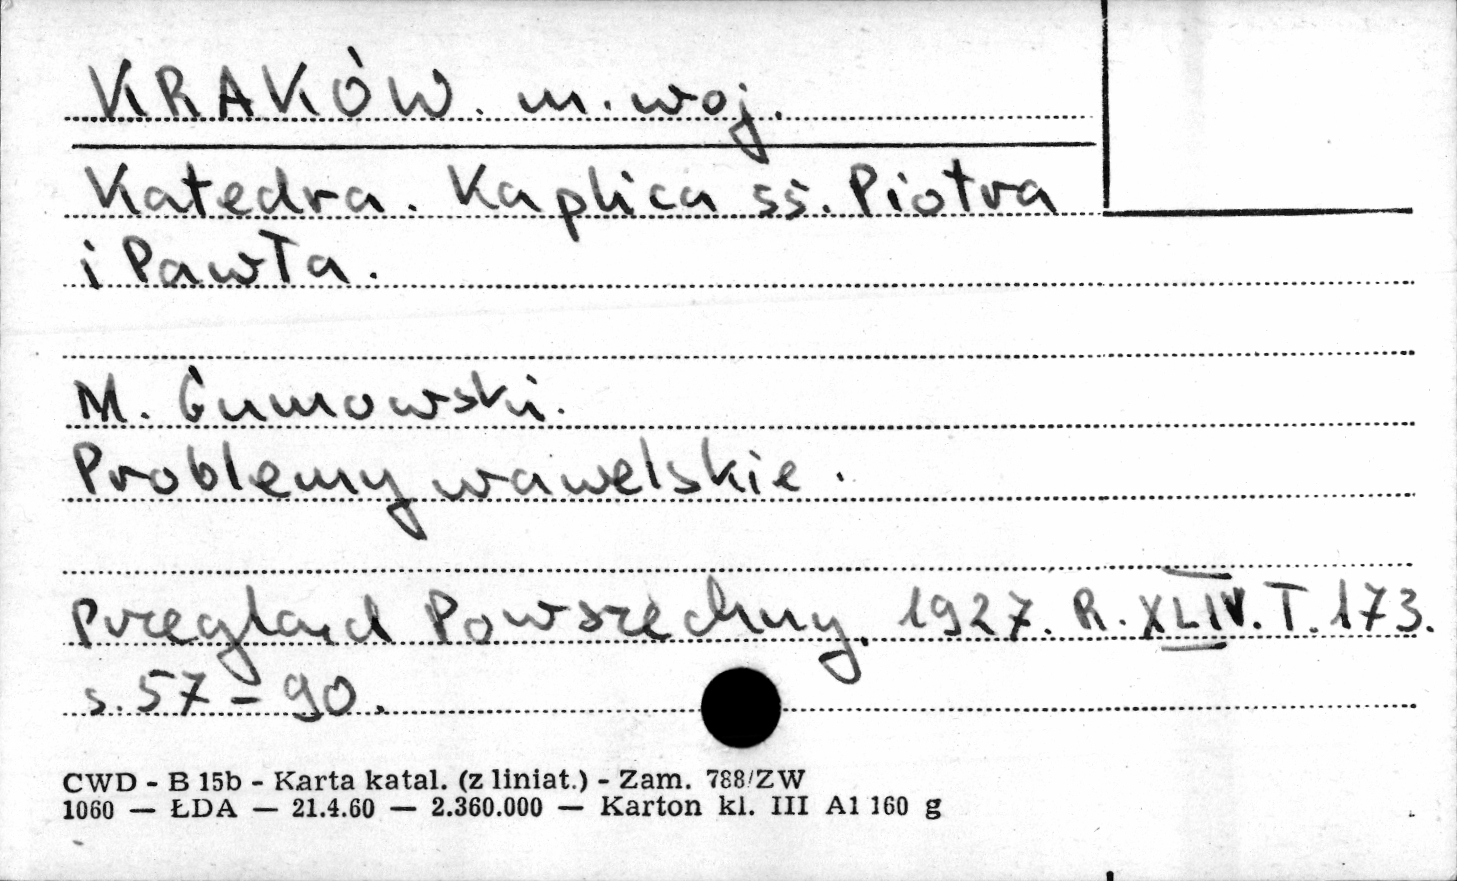 KRAKÓW. m. woj.
Katedra. Kaplica śś. Piotra
i Pawła.
M. Gumowski.
Problemy wawelskie.
Przegląd Powszechny. 1927. R. XLIV. T. 173.
s. 57 - 90.
CWD - B 15b - Karta katal. (z liniat.) - Zam. 788/ZW
1060 — ŁDA — 21.4.60 — 2.360.000 — Karton kl. III A1 160 g